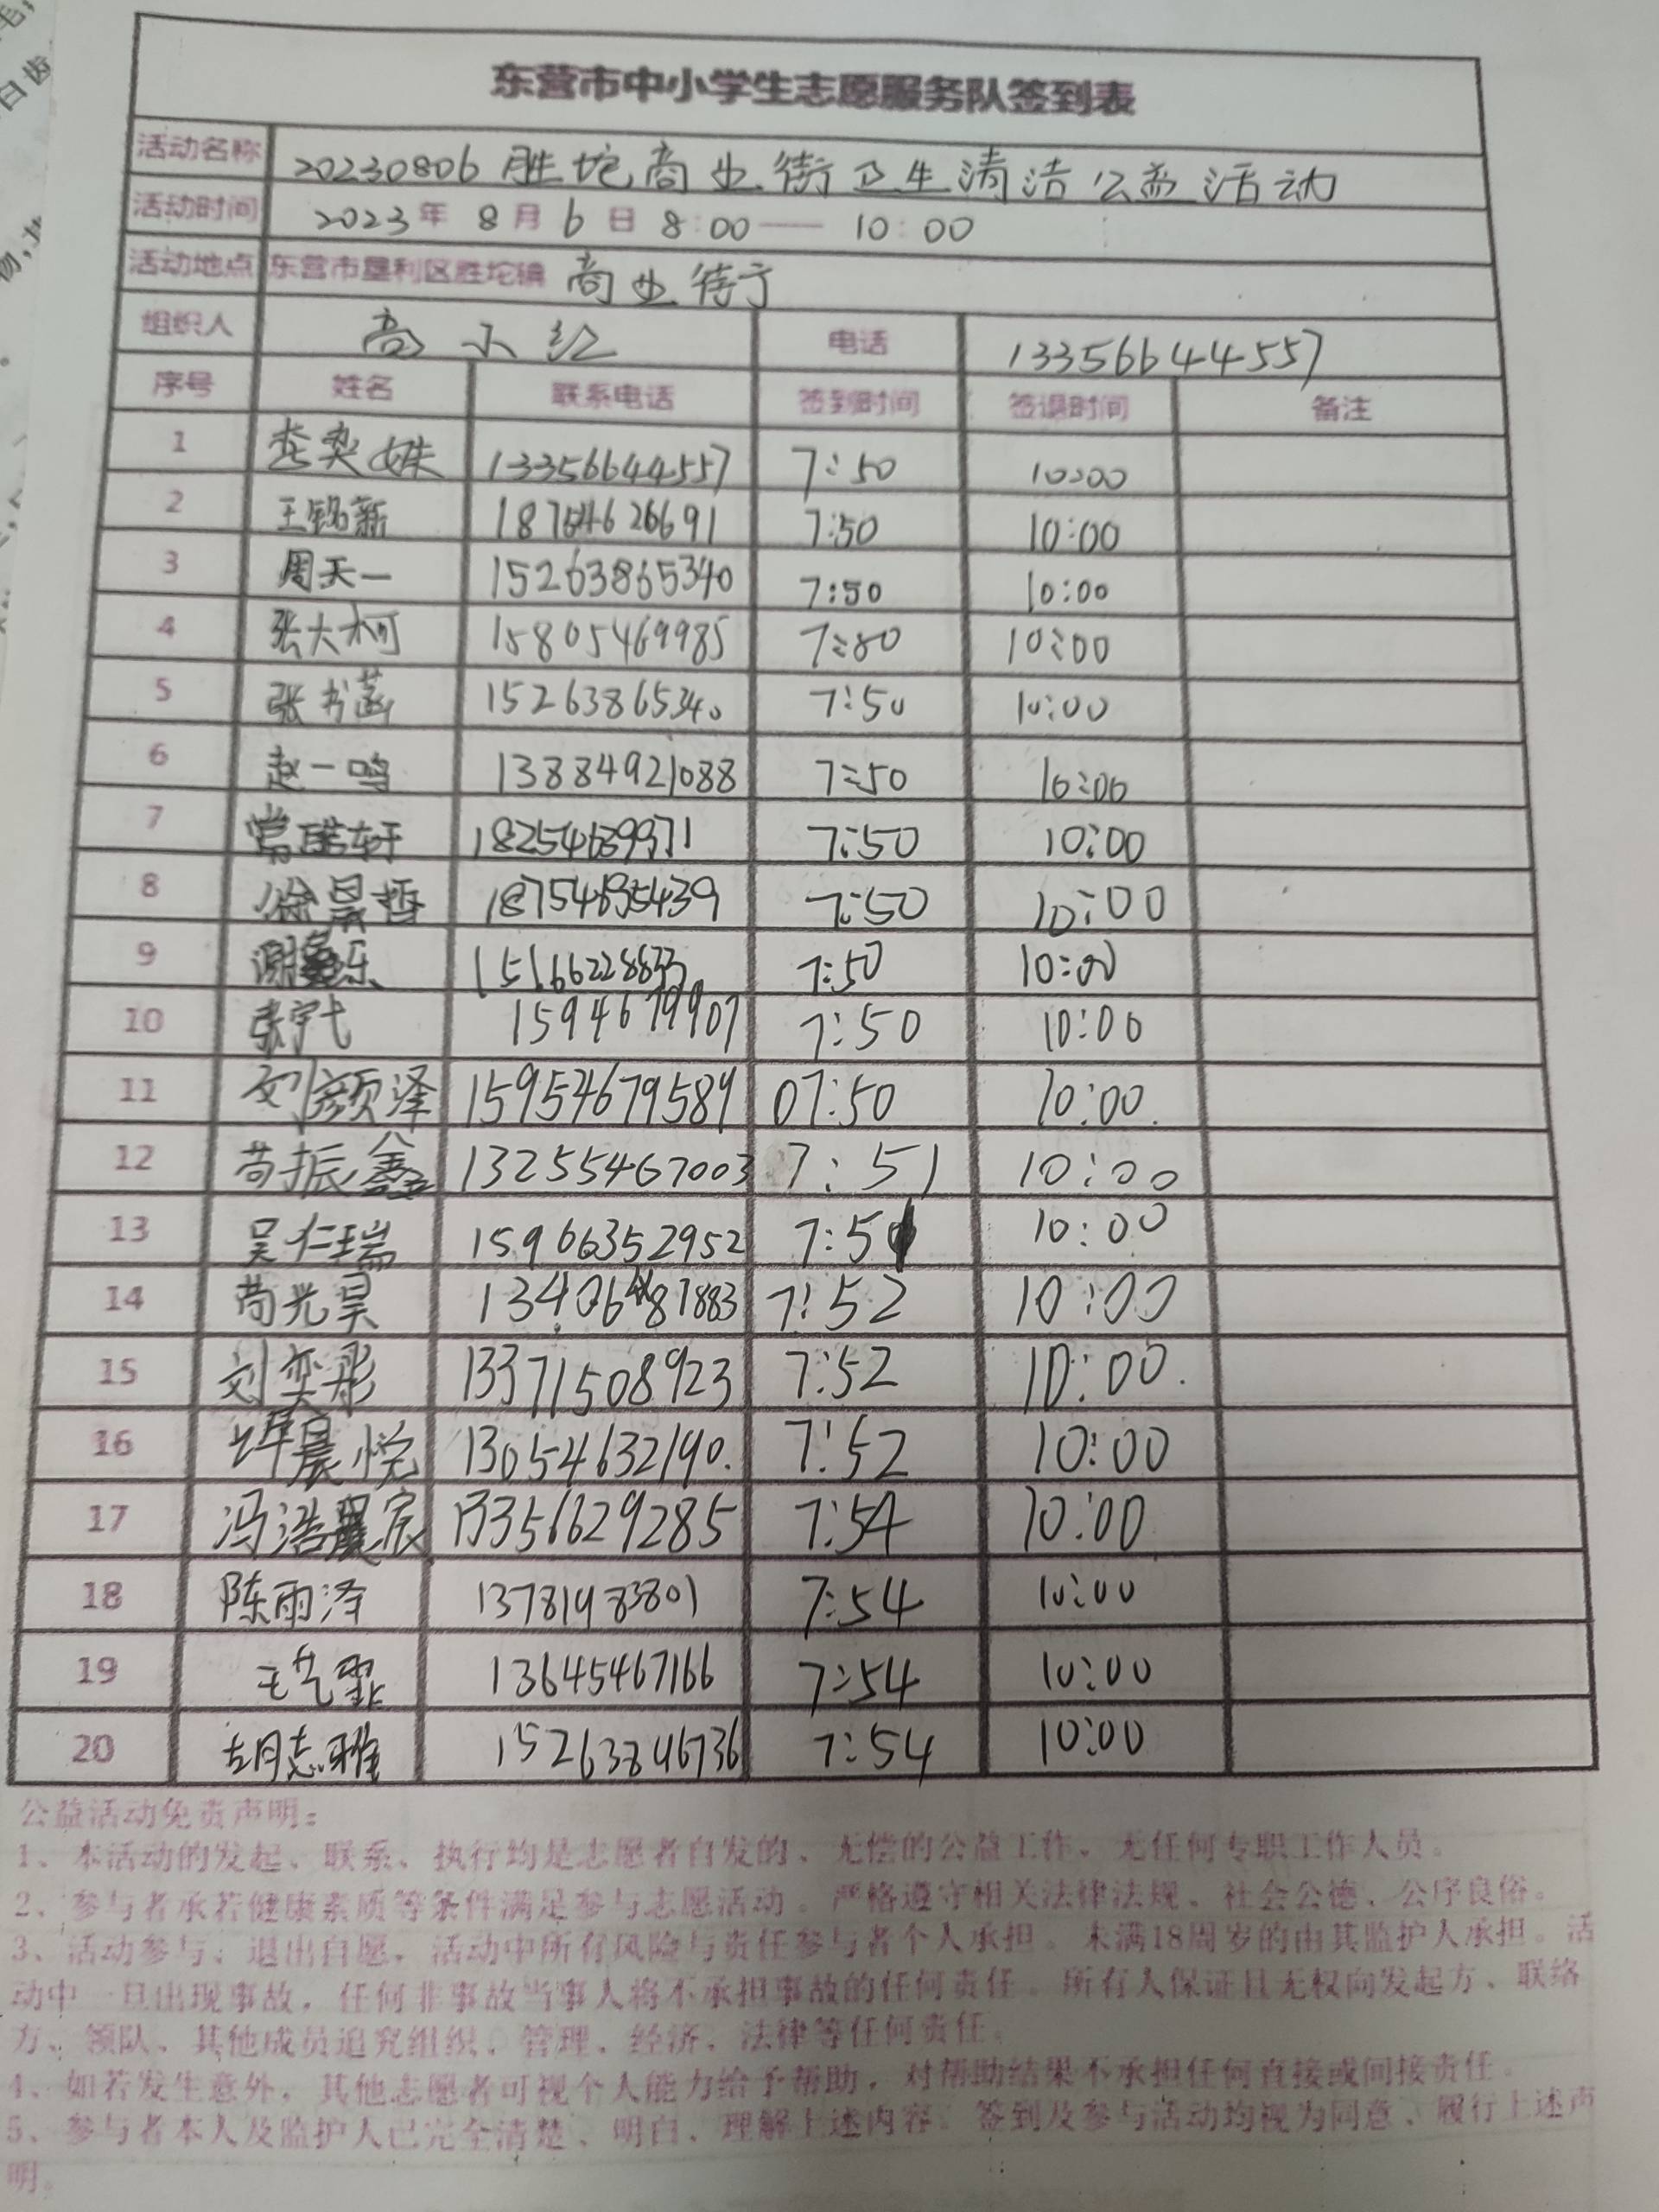 东营市中小学生志愿服务队签到表
活动名称 20230806胜坨商业街卫生清洁公益活动
活动时间 2023年8月6日 8:00——10:00
活动地点 东营市垦利区胜坨镇 商业街
组织人 高小红 电话 13356644557
序号 姓名 联系电话 签到时间 签退时间 备注
1 姝 13356644557 7:50 10:00
2 王铭新 7:50 10:00
3 周天一 15263865340 7:50 10:00
4 张大柯 15805469985 7:50 10:00
5 张书菡 15263865340 7:50 10:00
6 赵一鸣 13884921088 7:50 10:00
7 常皓轩 7:50 10:00
8 徐晨哲 7:50 10:00
9 谢 乐 7:50 10:00
10 张宇弋 1594679907 7:50 10:00
11 刘颜泽 15954679589 07:50 10:00
12 苟振鑫 13255467003 7:51 10:00
13 吴仁瑞 15966352952 7:51 10:00
14 苟光昊 7:52 10:00
15 刘奕彤 13371508923 7:52 10:00.
16 晨悦 13054632190. 7:52 10:00
17 冯浩宸 13356629285 7:54 10:00
18 陈雨泽 13781983801 7:54 10:00
19 王艺霏 13645467166 7:54 10:00
20 胡志雅 15263846736 7:54 10:00
公益活动免责声明:
1、本活动的发起、联系、执行均是志愿者自发的、无偿的公益工作，无任何专职工作人员。
2、参与者承若健康素质等条件满足参与志愿活动。严格遵守相关法律法规、社会公德、公序良俗。
3、活动参与、退出自愿，活动中所有风险与责任参与者个人承担。未满18周岁的由其监护人承担。活
动中一旦出现事故，任何非事故当事人将不承担事故的任何责任。所有人保证且无权向发起方、联络
方、领队、其他成员追究组织、管理、经济、法律等任何责任。
4、如若发生意外，其他志愿者可视个人能力给予帮助，对帮助结果不承担任何直接或间接责任。
5、参与者本人及监护人已完全清楚、明白、理解上述内容。签到及参与活动均视为同意、履行上述声
明。